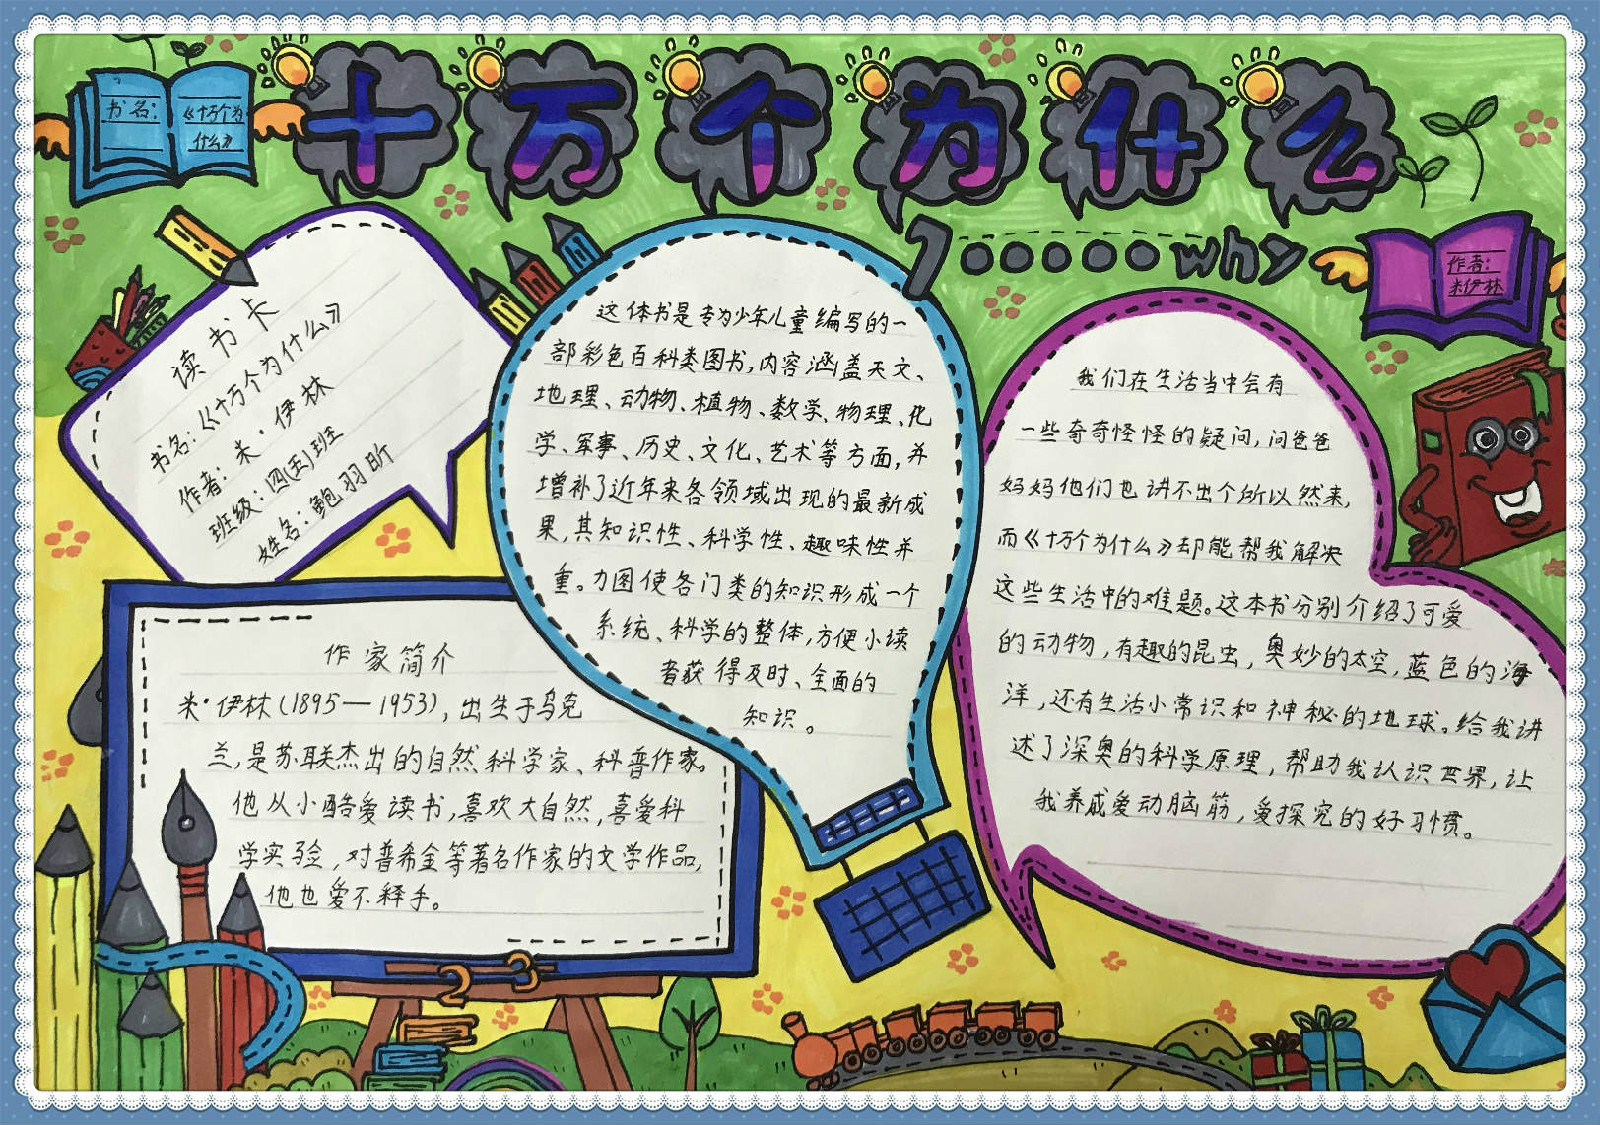 十万个为什么
书名:
《十万个为
什么》
100000why
作者:
米伊林
读书卡
书名:《十万个为什么》
作者:米·伊林
班级:四(五)班
姓名:鲍羽昕
这体书是专为少年儿童编写的一
部彩色百科类图书,内容涵盖天文、
地理、动物、植物、数学、物理、化
学、军事、历史、文化、艺术等方面,并
增补了近年来各领域出现的最新成
果,其知识性、科学性、趣味性并
重。力图使各门类的知识形成一个
系统、科学的整体,方便小读
者获得及时、全面的
知识。
我们在生活当中会有
一些奇奇怪怪的疑问,问爸爸
妈妈他们也讲不出个所以然来,
而《十万个为什么》却能帮我解决
这些生活中的难题。这本书分别介绍了可爱
的动物,有趣的昆虫,奥妙的太空,蓝色的海
洋,还有生活小常识和神秘的地球。给我讲
述了深奥的科学原理,帮助我认识世界,让
我养成爱动脑筋,爱探究的好习惯。
作家简介
米·伊林(1895—1953),出生于乌克
兰,是苏联杰出的自然科学家、科普作家。
他从小酷爱读书,喜欢大自然,喜爱科
学实验,对普希金等著名作家的文学作品,
他也爱不释手。
2 3